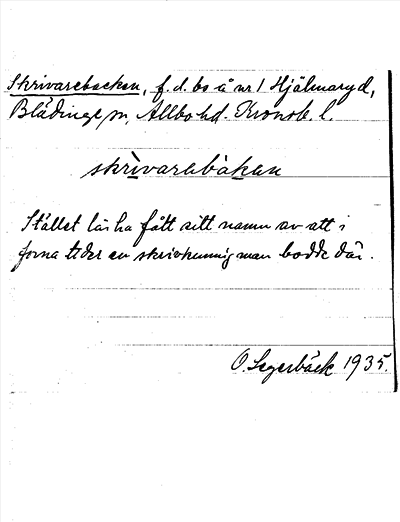 Skrivarebacken, f.d. bs å nr 1 Hjälmaryd,
Blädinge sn, Allbo hd. Kronob. l.
skrìvarabàkan
Stället lär ha fått sitt namn av att i
forna tider en skrivkunnig man bodde där.
O. Segerbäck 1935.